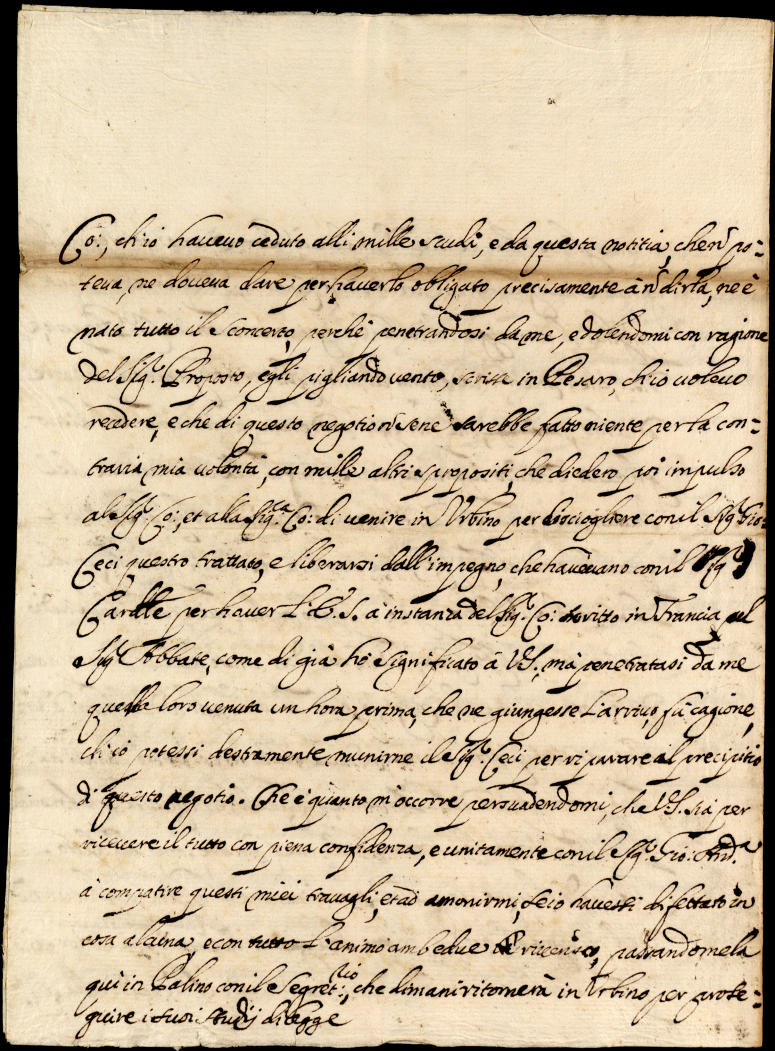 Co:, ch'io havevo ceduto alli mille scudi, e da questa notitia, che nõ po=
teva, ne doveva dare per haverlo obligato precisamente à nõ dirla, ne è
nato tutto il sconcerto, perche penetrandosi da me, e dolendomi con ragione
del Sigr. Proposto, egli pigliando vento, scrisse in Pesaro, ch'io volevo
recedere, e che di questo negotio nõ se ne sarebbe fatto niente per la con=
traria mia volontà, con mille altri spropositi, che diedero poi impulso
al Sigr. Co:, et alla Sigra. Co: di venire in Urbino per disciogliere con il Sigr. Gio:
Ceci questo trattato, e liberarsi dall'impegno, che havevano con il Sigr.
per haver à instanza del Sigr. Co: scritto in Francia al
Sigr. Abbate, come di già hò significato à V.S., mà penetratasi da me
quella loro venuta un hora prima, che ne giungesse l'arrivo, fù cagione,
ch'io potessi destramente munirne il Sigr. Ceci per riparare al precipitio
di questo negotio. Che è quanto m'occorre persuadendomi, che V.S. sia per
ricevere il tutto con piena confidenza, e unitamente con il Sigr. Gio: Anda.
à compatire questi miei travagli, et ad amonirmi, se io havessi difettato in
cosa alcuna, e con tutto l'animo ambedue riverisco, passandomela
quì in Palino con il Segretrio:, che dimani ritornerà in Urbino per prose=
guire i suoi studij di legge